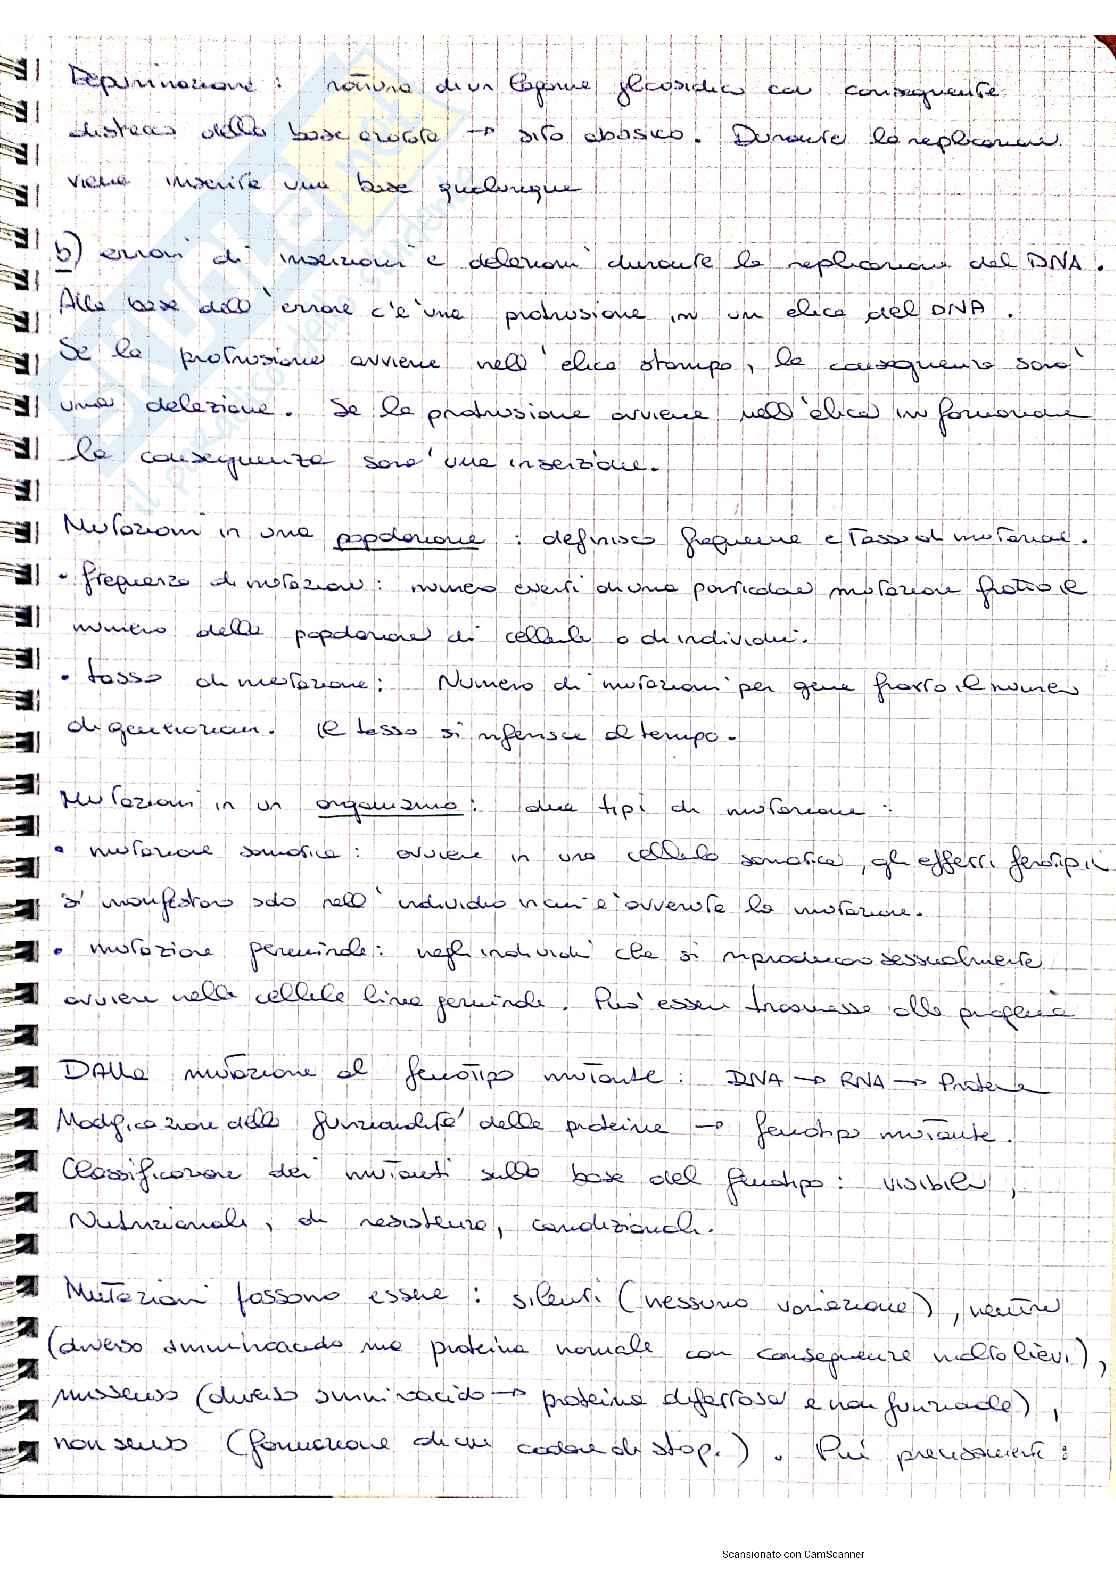 Depurinazione: rottura di un legame glicosidico con conseguente
distacco della base azotata → sito abasico. Durante la replicazione
viene inserita una base qualunque
b) errori di inserzioni e delezioni durante la replicazione del DNA.
Alla base dell'errore c'è una protrusione in un elica del DNA.
Se la protrusione avviene nell'elica stampo, la conseguenza sarà
una delezione. Se la protrusione avviene nell'elica in formazione
la conseguenza sarà una inserzione.
Mutazioni in una popolazione: definisco frequenza e tasso di mutazione.
• frequenza di mutazioni: numero eventi di una particolare mutazione fratto il
numero della popolazione di cellule o di individui.
• tasso di mutazione: Numero di mutazioni per gene fratto il numero
di generazioni. Il tasso si riferisce al tempo.
Mutazioni in un organismo: due tipi di mutazione:
• mutazione somatica: avviene in una cellula somatica, gli effetti fenotipici
si manifestano solo nell'individuo in cui è avvenuta la mutazione.
• mutazione germinale: negli individui che si riproducono sessualmente
avviene nelle cellule linea germinale. Può essere trasmessa alla progenie
DAlla mutazione al fenotipo mutante: DNA → RNA → Proteina
Modificazione della funzionalità delle proteine → fenotipo mutante.
Classificazione dei mutanti sulla base del fenotipo: visibili,
Nutrizionali, di resistenza, condizionali.
Mutazioni possono essere: silenti (nessuna variazione), neutre
(diverso amminoacido ma proteina normale con conseguenze molto lievi),
missenso (diverso amminoacido → proteina difettosa e non funzionale),
non senso (formazione di un codone di stop.). Più precisamente:
Scansionato con CamScanner